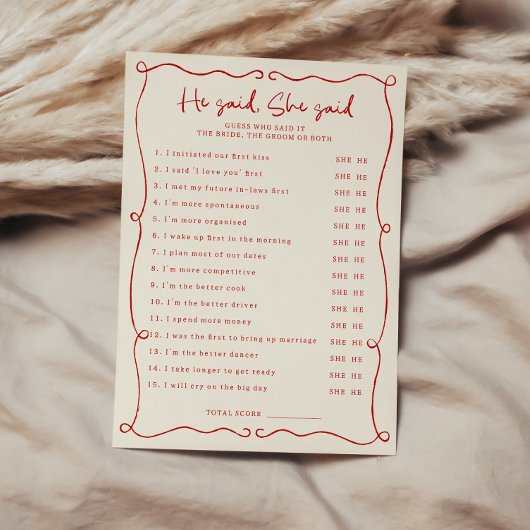 He said, She said
GUESS WHO SAID IT
THE BRIDE, THE GROOM OR BOTH
1. I initiated our first kiss SHE HE
2. I said 'I love you' first SHE HE
3. I met my future in-laws first SHE HE
4. I'm more spontaneous SHE HE
5. I'm more organised SHE HE
6. I wake up first in the morning SHE HE
7. I plan most of our dates SHE HE
8. I'm more competitive SHE HE
9. I'm the better cook SHE HE
10. I'm the better driver SHE HE
11. I spend more money SHE HE
12. I was the first to bring up marriage SHE HE
13. I'm the better dancer SHE HE
14. I take longer to get ready SHE HE
15. I will cry on the big day SHE HE
TOTAL SCORE